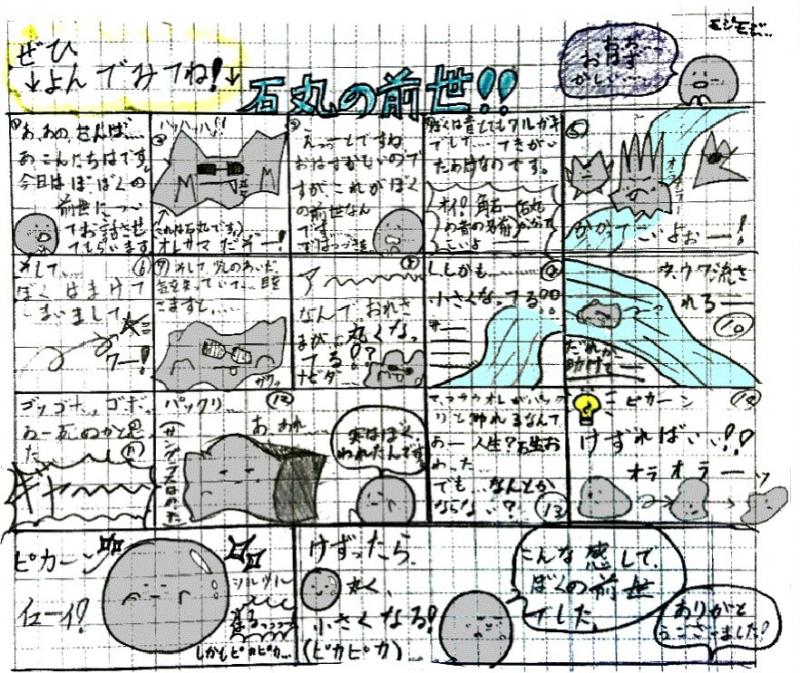 ぜひ
↓よんでみてね!↓
石丸の前世!!
モジモジ…
ああ……
おはず
かしい…
①
あ、あの、せんぱ…
あ、こんにちはです。
今日はぼ、ぼくの
前世につい
てお話させ
てもらいます
②
ハッハハハ!!
(これは石丸です。)
オレサマだぞー!
③
えっーとですね
おはずかしいので
すがこれがぼく
の前世なん
です
ではつづきを
ぼくは昔とてもワルガキ
でして……てきがい
たわけなのです。
オイ!角石一石丸
⑤
オラオラ
かかってこいよぉー!
⑥
そして……
ぼくはまけて
しまいまして
ワー!
⑦
そして、川のそいだ、
気を失っていて…目を
さますと……
⑧
ア〜
なんで、おれさ
まが、丸くなっ
てる!?
ナゼダ…
⑨
し、しかも………
小さくなってる!!
サー
⑩
ウ、ウワ、流さ
れるー
だれか
助けて
⑪
ゴッ、ゴボッ、ゴボ、
あー死ぬかと思っ
た
ギャー
⑫
パックリ……
あ、あれ…
実はぼく、
われたんです
⑬
マ、マサカオレがパック
リと節れるなんて
あー人生?お生お
わった…
でも…なんとか
ならない?
ピカーン
けずればいい!!
オラオラー
ピカーン
イエーイ!
ツルツル
しかもピカピカ…
けずったら、
丸く、
小さくなる!
(ピカピカ)
こんな感じで、
ぼくの前世
でした
ありがと
うございました!